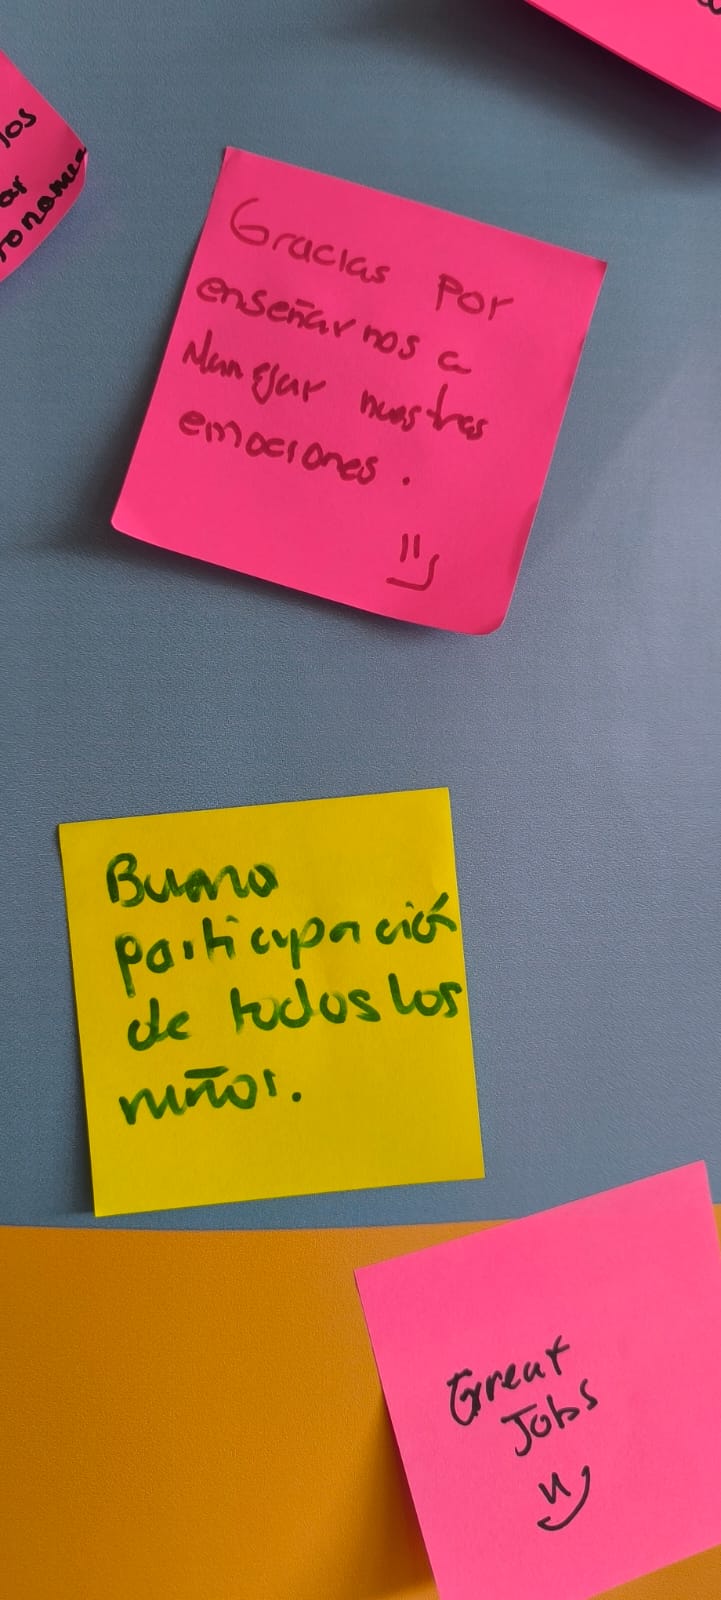 los
ar
Gracias por
enseñarnos a
Manejar nuestras
emociones.
Buena
participación
de todos los
niños.
Great
Jobs